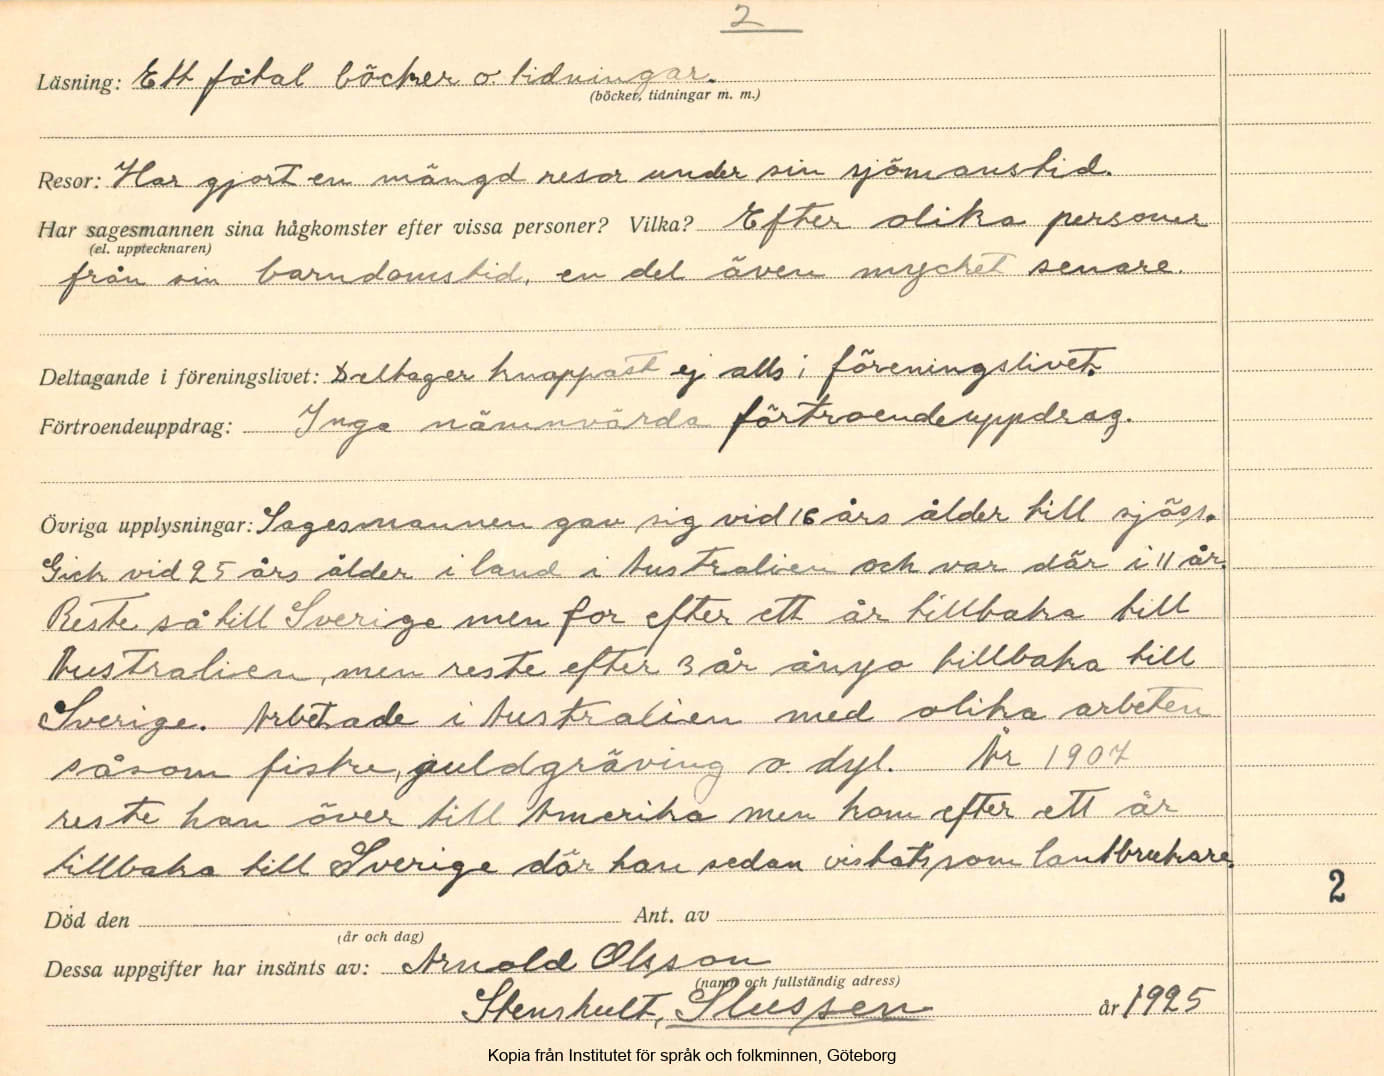 2
Läsning: Ett fåtal böcker o. tidningar.
(böcker, tidningar m. m.)
Resor: Har gjort en mängd resor under sin sjömanstid.
Har sagesmannen sina hågkomster efter vissa personer? Vilka? Efter olika personer
(el. upptecknaren)
från sin barndomstid, en del även mycket senare.
Deltagande i föreningslivet: Deltager knappast ej alls i föreningslivet.
Förtroendeuppdrag: Inga nämnvärda förtroendeuppdrag.
Övriga upplysningar: Sagesmannen gav sig vid 16 års ålder till sjöss.
Gick vid 25 års ålder i land i Australien och var där i 11 år.
Reste så till Sverige men for efter ett år tillbaka till
Australien, men reste efter 3 år ånyo tillbaka till
Sverige. Arbetade i Australien med olika arbeten
såsom fiske, guldgräving o. dyl. År 1907
reste han över till Amerika men kom efter ett år
tillbaka till Sverige där han sedan vistats som lantbrukare.
2
Död den Ant. av
(år och dag)
Dessa uppgifter har insänts av: Arnold Olsson
(namn och fullständig adress)
Stenshult, Slussen år 1925
Kopia från Institutet för språk och folkminnen, Göteborg